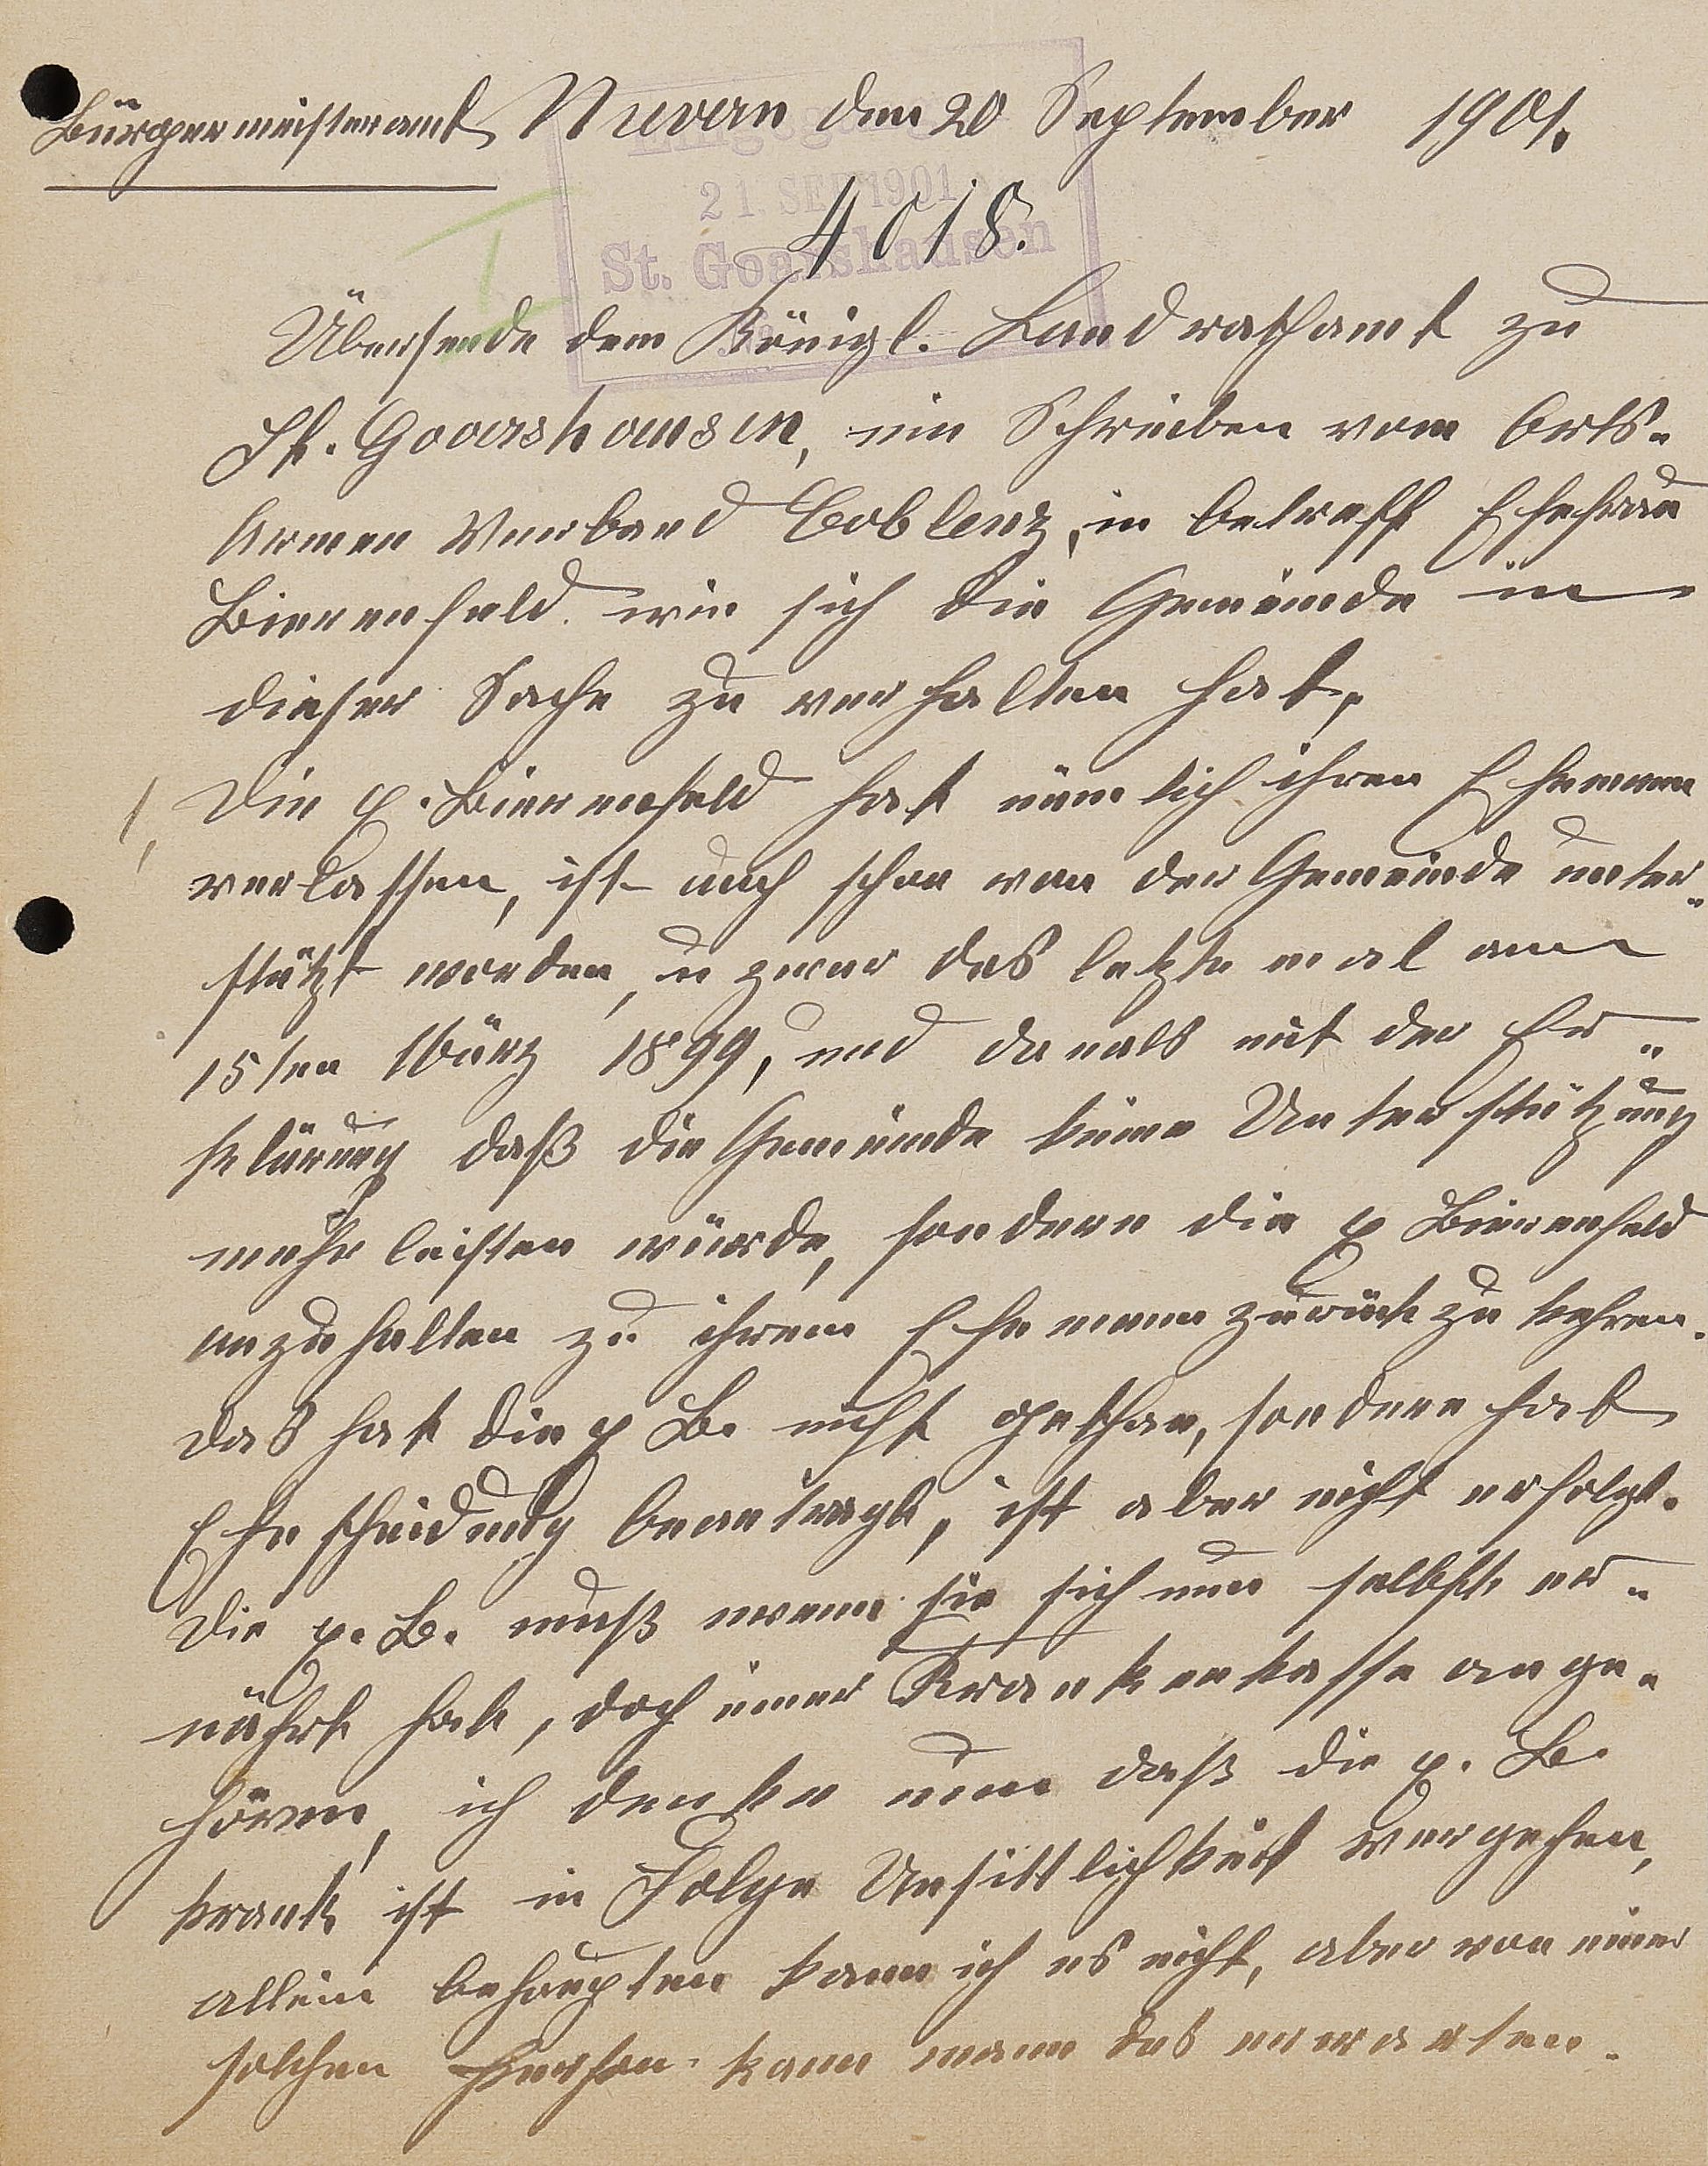 Bürgermeisteramt Nievern den 20 September 1901.
Eingegangen
21. SEP 1901
4018.
St. Goarshausen
Übersende dem Königl. Landrathamt zu
St. Goarshausen, ein Schreiben vom Orts-
Armen Verband Coblenz, in betreff Ehefrau
Bierenfeld. wie sich die Gemeinde in
dieser Sache zu verhalten hat,
1, Die p. Bierenfeld hat nämlich ihren Ehemann
verlassen, ist auch schon von der Gemeinde unter-
stützt worden, u zwar das letzte mal am
15ten März 1899, und damals mit der Er-
klärung daß die Gemeinde keine Unterstützung
mehr leisten würde, sondern die p Bierenfeld
anzuhalten zu ihrem Ehemann zurück zu kehren.
Das hat die p B. nicht gethan, sondern hat
Ehescheidung beantragt, ist aber nicht erfolgt.
Die p. B. muß wenn sie sich nun selbst er-
nährt hat, doch einer Krankenkasse ange-
hören, ich denke nun daß die p. B.
krank ist in Folge Unsittlichkeit Vergehen,
allein behaupten kann ich es nicht, aber von einer
solchen Person kann mann das erwarten.